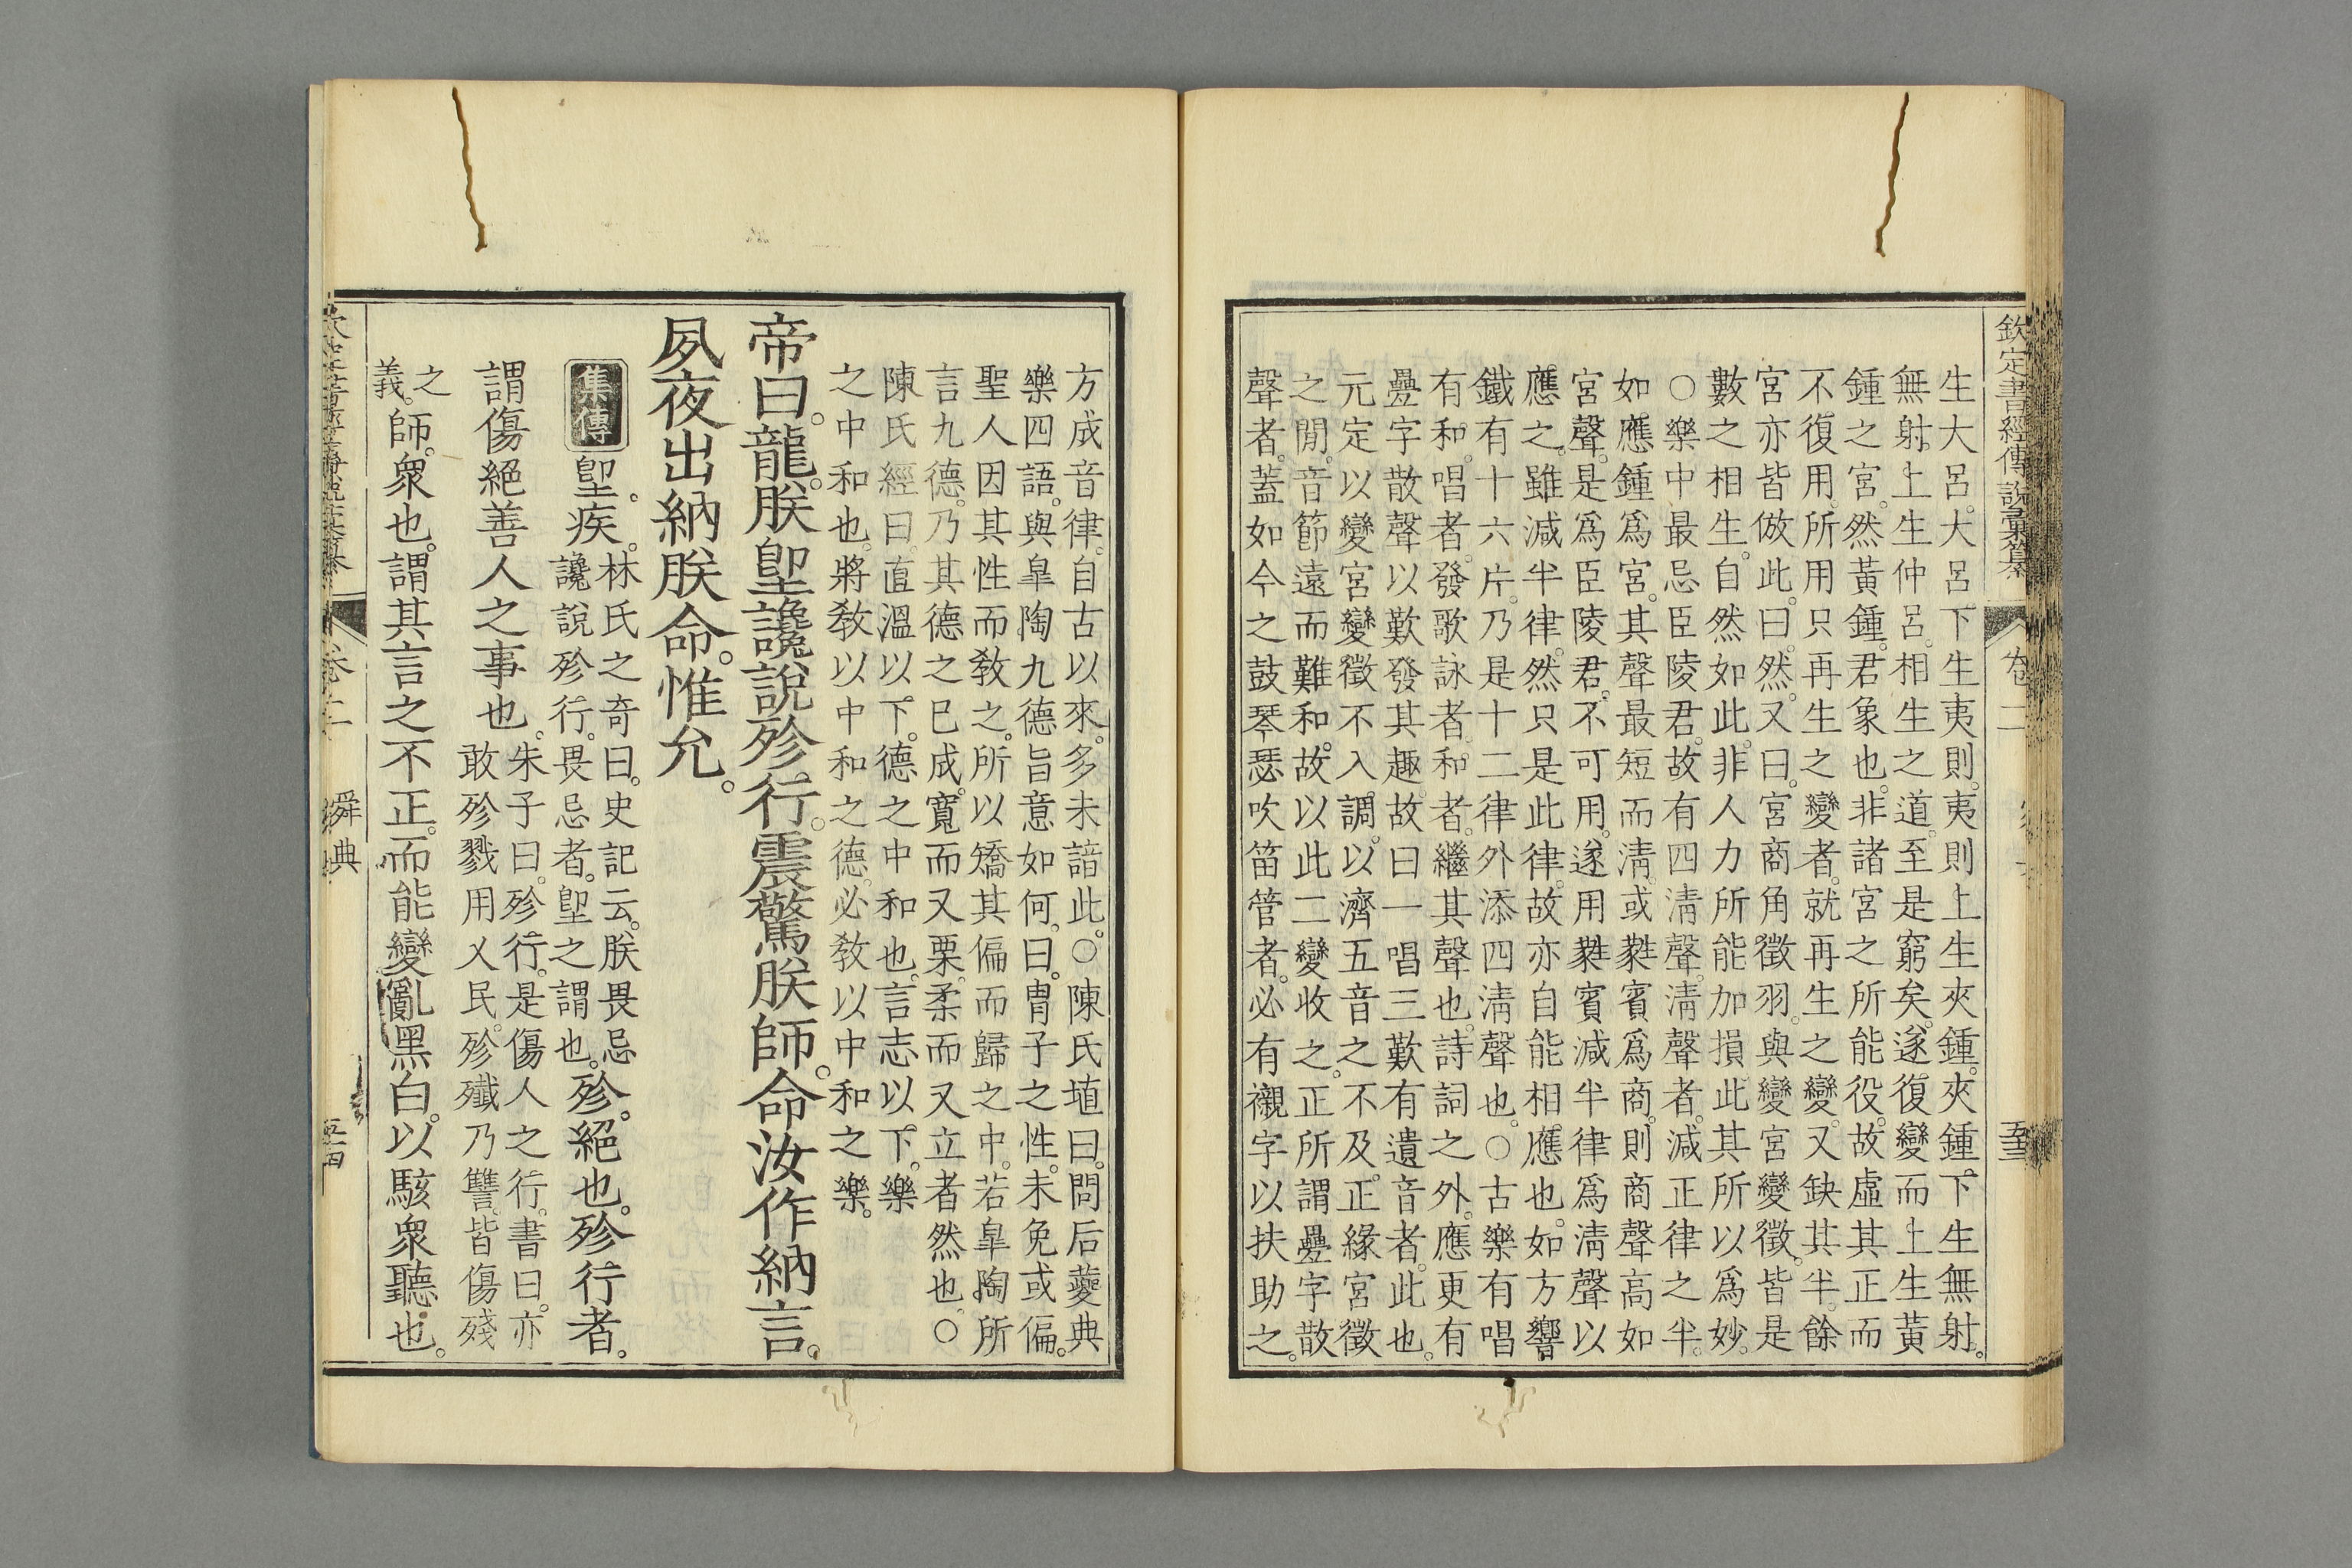 欽定書經傳說彙纂 卷二 五十三
生大呂。大呂下生夷則。夷則上生夾鍾。夾鍾下生無射。
無射上生仲呂。相生之道。至是窮矣。遂復變而上生黃
鍾之宮。然黃鍾。君象也。非諸宮之所能役。故虛其正而
不復用。所用只再生之變者。就再生之變。又缺其半。餘
宮亦皆倣此。曰。然。又曰。宮商角徵羽。與變宮變徵。皆是
數之相生。自然如此。非人力所能加損。此其所以爲妙。
○樂中最忌臣陵君。故有四淸聲。淸聲者。減正律之半。
如應鍾爲宮。其聲最短而淸。或蕤賓爲商。則商聲高如
宮聲。是爲臣陵君。不可用。遂用蕤賓減半律爲淸聲以
應之。雖減半律。然只是此律。故亦自能相應也。如方響
鐵有十六片。乃是十二律外添四淸聲也。○古樂有唱
有和。唱者。發歌詠者。和者。繼其聲也。詩詞之外。應更有
疊字散聲以歎發其趣。故曰一唱三歎有遺音者。此也。
元定以變宮變徵不入調。以濟五音之不及。正緣宮徵
之閒。音節遠而難和。故以此二變收之。正所謂疊字散
聲者。蓋如今之鼓琴瑟吹笛管者。必有襯字以扶助之。
方成音律。自古以來。多未諳此。○陳氏埴曰。問后夔典
樂四語。與臯陶九德旨意如何。曰。冑子之性。未免或偏。
聖人因其性而敎之。所以矯其偏而歸之中。若臯陶所
言九德。乃其德之已成。寬而又栗。柔而又立者然也。○
陳氏經曰。直溫以下。德之中和也。言志以下。樂
之中和也。將敎以中和之德。必敎以中和之樂。
帝曰。龍。朕堲讒說殄行。震驚朕師。命汝作納言。
夙夜出納朕命。惟允。
集傳 堲。疾。林氏之奇曰。史記云。朕畏忌
讒說殄行。畏忌者。堲之謂也。殄。絕也。殄行者。
謂傷絕善人之事也。朱子曰。殄行。是傷人之行。書曰。亦
敢殄戮用乂民。殄殲乃讐。皆傷殘
之義。師。衆也。謂其言之不正。而能變亂黑白。以駭衆聽也。
卷二 舜典